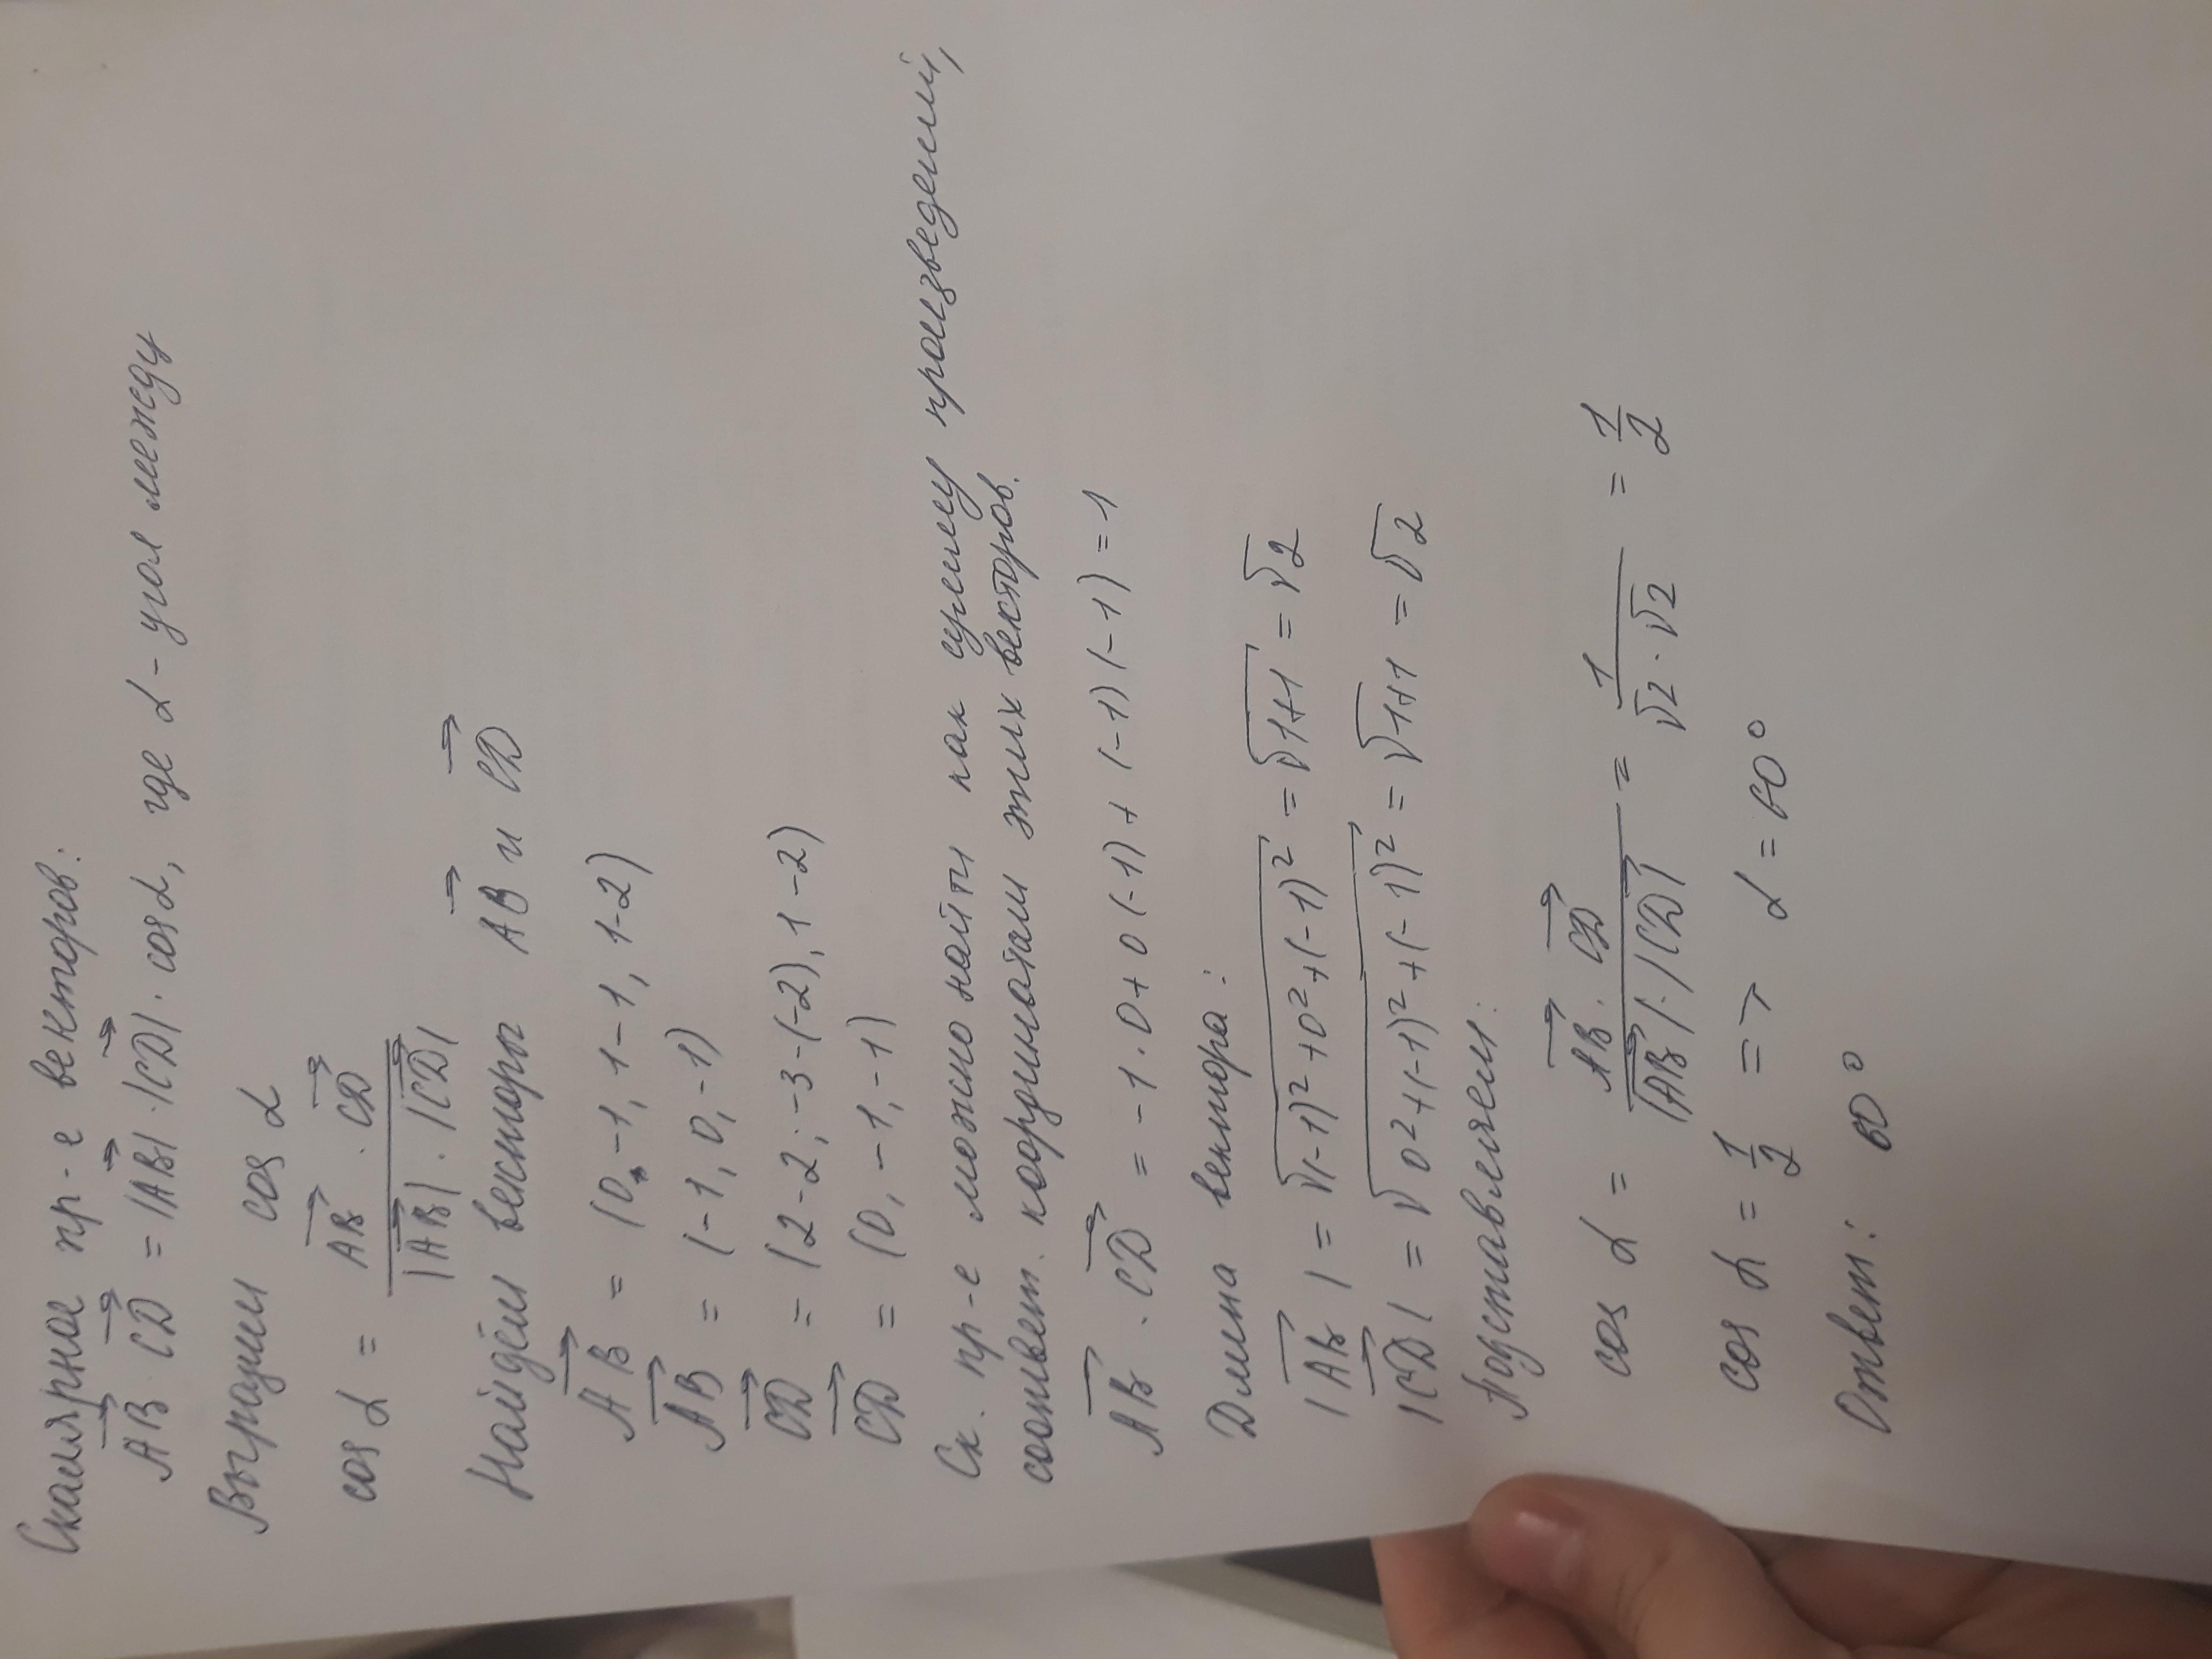 Скалярное пр-е векторов:
AB · CD = |AB| · |CD| · cos α, где α - угол между
Выразим cos α
cos α = AB · CD / |AB| · |CD|
Найдём векторы AB и CD
AB = (0 - 1, 1 - 1, 1 - 2)
AB = (-1, 0, -1)
CD = (2 - 2; -3 - (-2), 1 - 2)
CD = (0, -1, -1)
Ск. пр-е можно найти как сумму произведений,
соответ. координатам этих векторов.
AB · CD = -1 · 0 + 0 (-1) + (-1) (-1) = 1
Длина вектора:
|AB| = √(-1)² + 0² + (-1)² = √1+1 = √2
|CD| = √0² + (-1)² + (-1)² = √1+1 = √2
Подставляем:
cos α = AB · CD / |AB| · |CD| = 1 / √2 · √2 = 1/2
cos α = 1/2 => α = 60°
Ответ: 60°